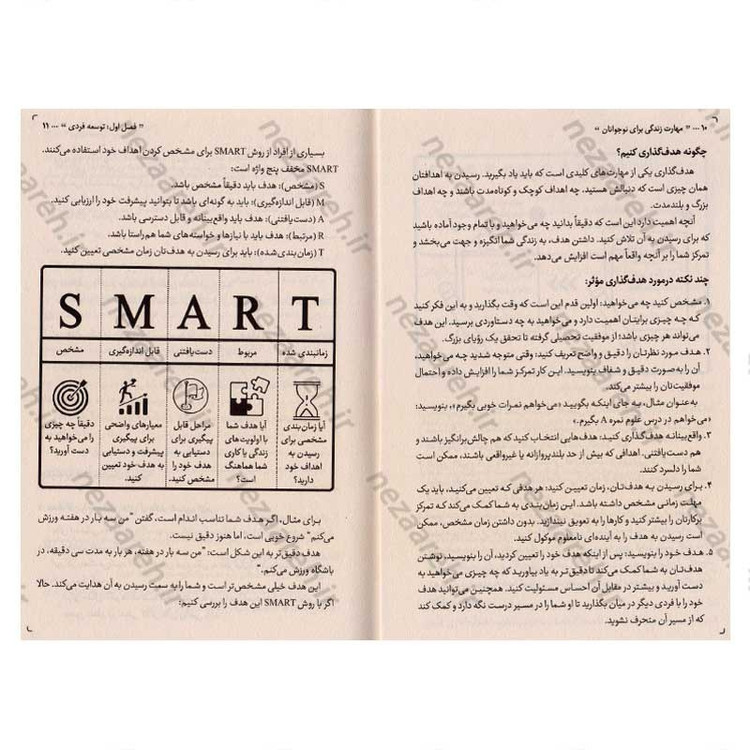 ۱۰ ... " مهارت زندگی برای نوجوانان "
چگونه هدف‌گذاری کنیم؟
هدف‌گذاری یکی از مهارت‌های کلیدی است که باید یاد بگیرید. رسیدن به اهدافتان
همان چیزی است که دنبالش هستید. چه اهداف کوچک و کوتاه‌مدت باشند و چه اهداف
بزرگ و بلندمدت.
آنچه اهمیت دارد این است که دقیقاً بدانید چه می‌خواهید و با تمام وجود آماده باشید
که برای رسیدن به آن تلاش کنید. داشتن هدف، به زندگی شما انگیزه و جهت می‌بخشد و
تمرکز شما را بر آنچه واقعاً مهم است افزایش می‌دهد.
چند نکته درمورد هدف‌گذاری مؤثر:
۱. مشخص کنید چه می‌خواهید: اولین قدم این است که وقت بگذارید و به این فکر کنید
که چه چیزی برایتان اهمیت دارد و می‌خواهید به چه دستاوردی برسید. این هدف
می‌تواند هر چیزی باشد؛ از موفقیت تحصیلی گرفته تا تحقق یک رؤیای بزرگ.
۲. هدف مورد نظرتان را دقیق و واضح تعریف کنید: وقتی متوجه شدید چه می‌خواهید،
آن را به‌صورت دقیق و شفاف بنویسید. این کار تمرکز شما را افزایش داده و احتمال
موفقیت‌تان را بیشتر می‌کند.
به‌عنوان مثال، به جای اینکه بگویید «می‌خواهم نمرات خوبی بگیرم»، بنویسید:
«می‌خواهم در درس علوم نمره A بگیرم.»
۳. واقع‌بینانه هدف‌گذاری کنید: هدف‌هایی انتخاب کنید که هم چالش‌برانگیز باشند و
هم دست‌یافتنی. اهدافی که بیش از حد بلندپروازانه یا غیرواقعی باشند، ممکن است
شما را دلسرد کنند.
۴. برای رسیدن به هدف‌تان، زمان تعیین کنید: هر هدفی که تعیین می‌کنید، باید یک
مهلت زمانی مشخص داشته باشد. این زمان‌بندی به شما کمک می‌کند که تمرکز
برکارتان را بیشتر کنید و کارها را به تعویق نیندازید. بدون داشتن زمان مشخص، ممکن
است رسیدن به هدف را به آینده‌ای نامعلوم موکول کنید.
۵. هدف خود را بنویسید: پس از اینکه هدف خود را تعیین کردید، آن را بنویسید. نوشتن
هدف‌تان به شما کمک می‌کند تا دقیق‌تر به یاد بیاورید که چه چیزی می‌خواهید به
دست آورید و بیشتر در مقابل آن احساس مسئولیت کنید. همچنین می‌توانید هدف
خود را با فردی دیگر در میان بگذارید تا او شما را در مسیر درست نگه دارد و کمک کند
که از مسیر آن منحرف نشوید.
" فصل اول: توسعه فردی " ... ۱۱
بسیاری از افراد از روش SMART برای مشخص کردن اهداف خود استفاده می‌کنند.
SMART مخفف پنج واژه است:
S (مشخص): هدف باید دقیقاً مشخص باشد.
M (قابل اندازه‌گیری): باید به گونه‌ای باشد تا بتوانید پیشرفت خود را ارزیابی کنید.
A (دست‌یافتنی): هدف باید واقع‌بینانه و قابل دسترسی باشد.
R (مرتبط): هدف باید با نیازها و خواسته‌های شما هم‌راستا باشد.
T (زمان‌بندی‌شده): باید برای رسیدن به هدف‌تان زمان مشخصی تعیین کنید.
S M A R T
مشخص
قابل اندازه‌گیری
دست‌یافتنی
مربوط
زمانبندی شده
دقیقاً چه چیزی
را می‌خواهید به
دست آورید؟
معیارهای واضحی
برای پیگیری
پیشرفت و دستیابی
به هدف خود تعیین
کنید.
مراحل قابل
پیگیری برای
دستیابی به
هدف خود را
مشخص کنید.
آیا هدف شما
با اولویت‌های
زندگی یا کاری
شما هماهنگ
است؟
آیا زمان‌بندی
مشخصی برای
رسیدن به
اهداف خود
دارید؟
برای مثال، اگر هدف شما تناسب اندام است، گفتن "من سه بار در هفته ورزش
می‌کنم" شروع خوبی است، اما هنوز دقیق نیست.
هدف دقیق‌تر به این شکل است: "من سه بار در هفته، هر بار به مدت سی دقیقه، در
باشگاه ورزش می‌کنم."
این هدف خیلی مشخص‌تر است و شما را به سمت رسیدن به آن هدایت می‌کند. حالا
اگر با روش SMART این هدف را بررسی کنیم:
nezaareh.ir